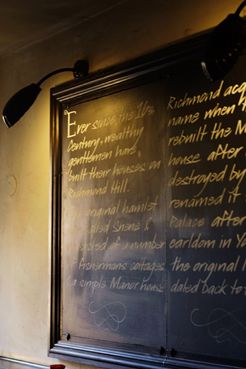 Ever since the 16th
Century, wealthy
gentlemen have
built their houses on
Richmond Hill.
original hamlet
called Shene &
of a number
fishermans cottages
a simple Manor house
Richmond acq
name when
rebuilt the M
house after
destroyed by
renamed it
Palace after
earldom in Yo
the original
dated back to